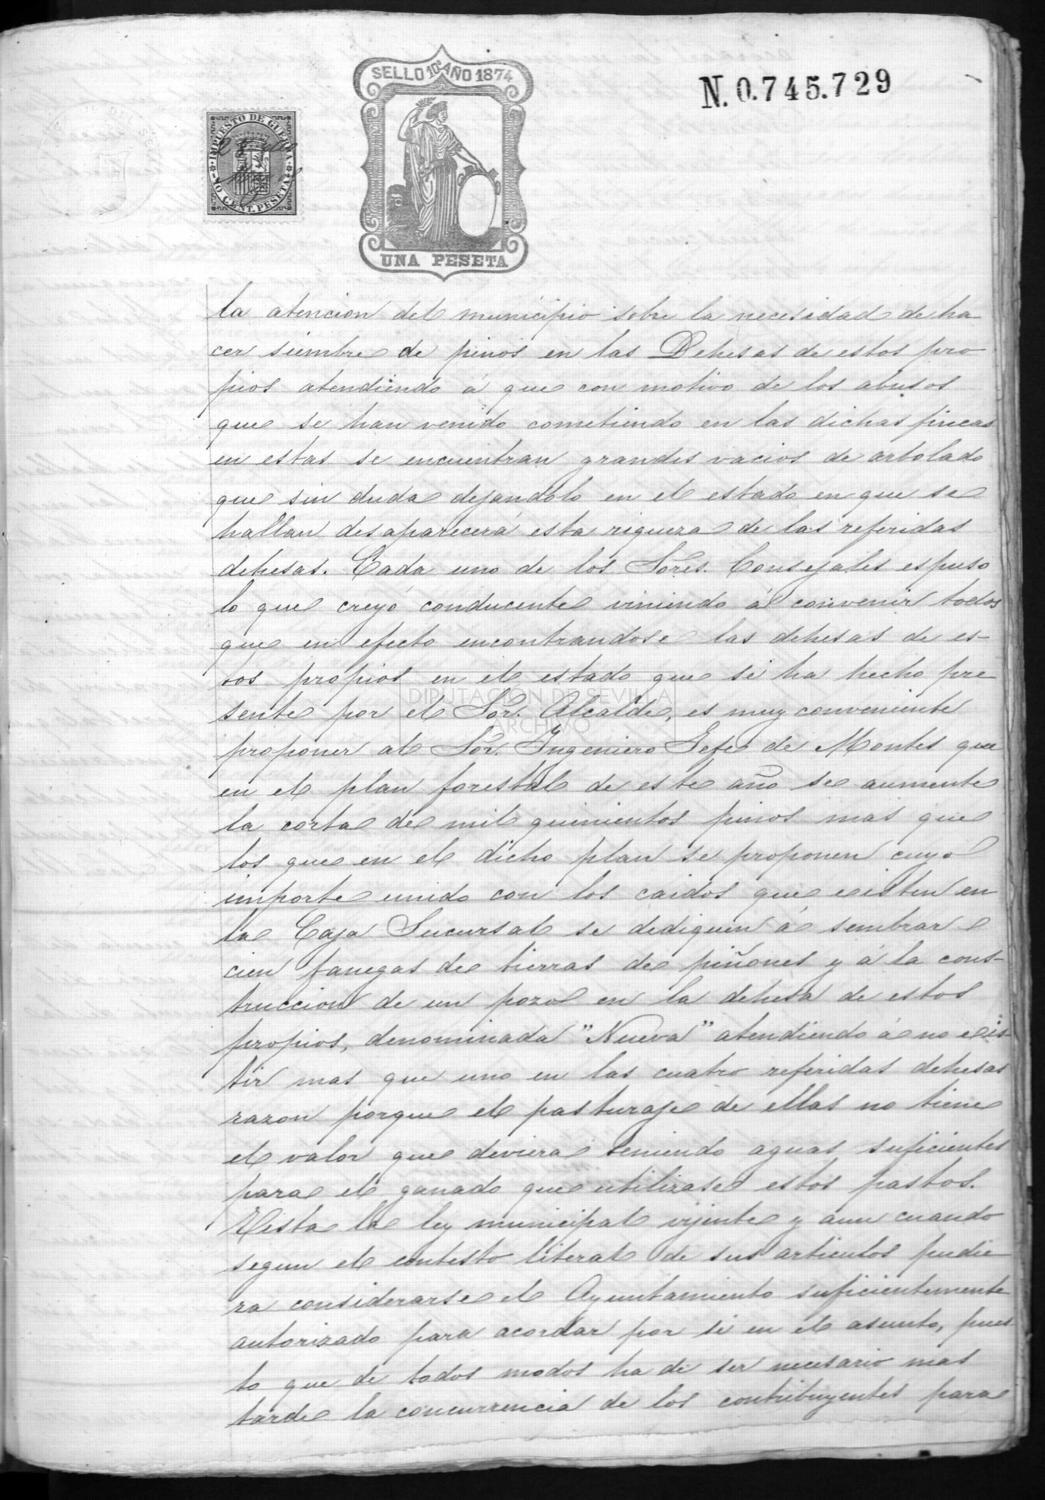 SELLO 10º AÑO 1874
N. 0.745.729
IMPUESTO DE GUERRA
10 CENT. PESETA
UNA PESETA
la atencion del municipio sobre la necesidad de ha-
cer siembre de pinos en las Dehesas de estos pro-
pios atendiendo á que con motivo de los abusos
que se han venido cometiendo en las dichas fincas
en estas se encuentran grandes vacios de arbolado
que sin duda dejandolo en el estado en que se
hallan desaparecerá esta riqueza de las referidas
dehesas. Cada uno de los Sores. Consejales espuso
lo que creyó conducente viniendo á convenir todos
que en efecto encontrandose las dehesas de es-
tos propios en el estado que se ha hecho pre
sente por el Sor. Alcalde, es muy conveniente
proponer al Sor. Ingeniero Gefe de Montes que
en el plan forestal de este año se aumente
la corta de mil quinientos pinos mas que
los que en el dicho plan se proponen cuyo
importe unido con los caidos que existen en
la Caja Sucursal se dediquen á sembrar
cien fanegas de tierras de piñones y á la cons-
truccion de un pozo en la dehesa de estos
propios, denominada "Nueva" atendiendo á no exis-
tir mas que uno en las cuatro referidas dehesas
razon porque el pasturage de ellas no tiene
el valor que deviera teniendo aguas suficientes
para el ganado que utilizase estos pastos.
Vista la ley municipal vijente y aun cuando
segun el contesto literal de sus articulos pudie
ra considerarse el Ayuntamiento suficientemente
autorizado para acordar por si en el asunto, pues
to que de todos modos ha de ser necesario mas
tarde la concurrencia de los contribuyentes para
DIPUTACIÓN DE SEVILLA
ARCHIVO